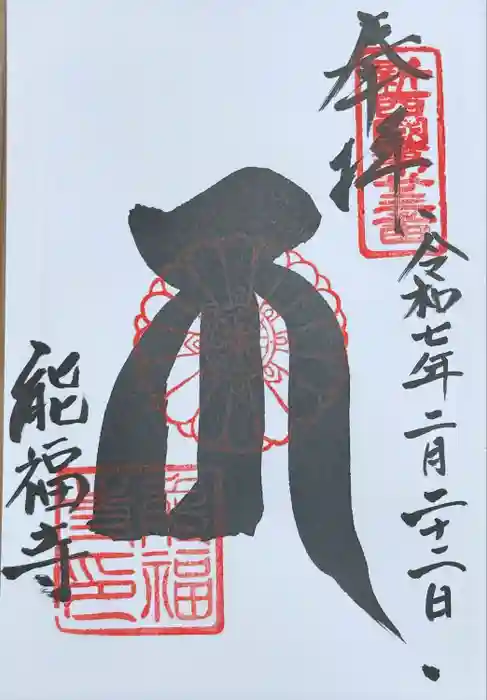 奉拝、
令和七年二月二十二日
能福寺
能福寺印